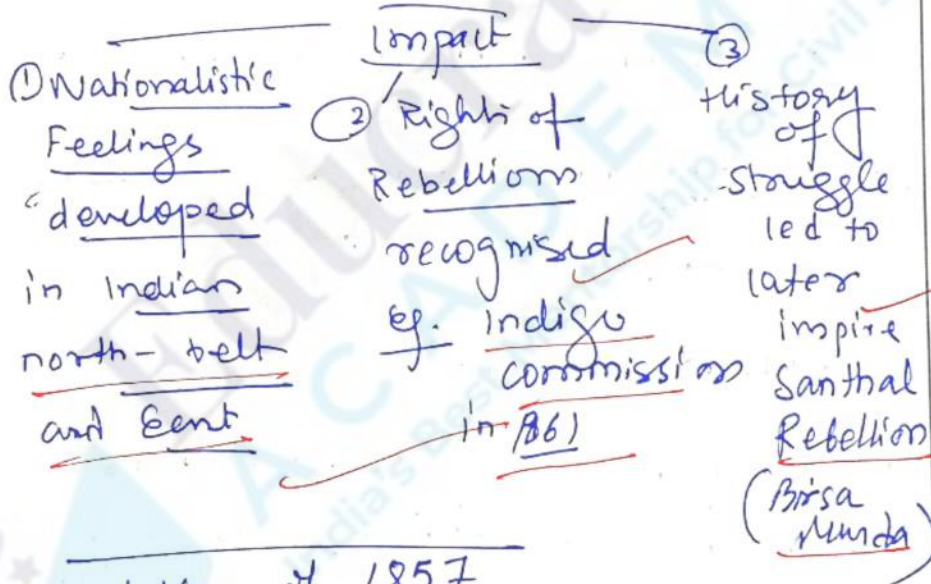 Impact
① Nationalistic
Feelings
developed
in Indian
north-belt
and East
② Rights of
Rebellions
recognised
eg. Indigo
commission
in 1861
③
History
of
struggle
led to
later
inspire
Santhal
Rebellion
(Birsa
Munda)
1857
Educra
ACADEM
India's Best Mentorship for Civil